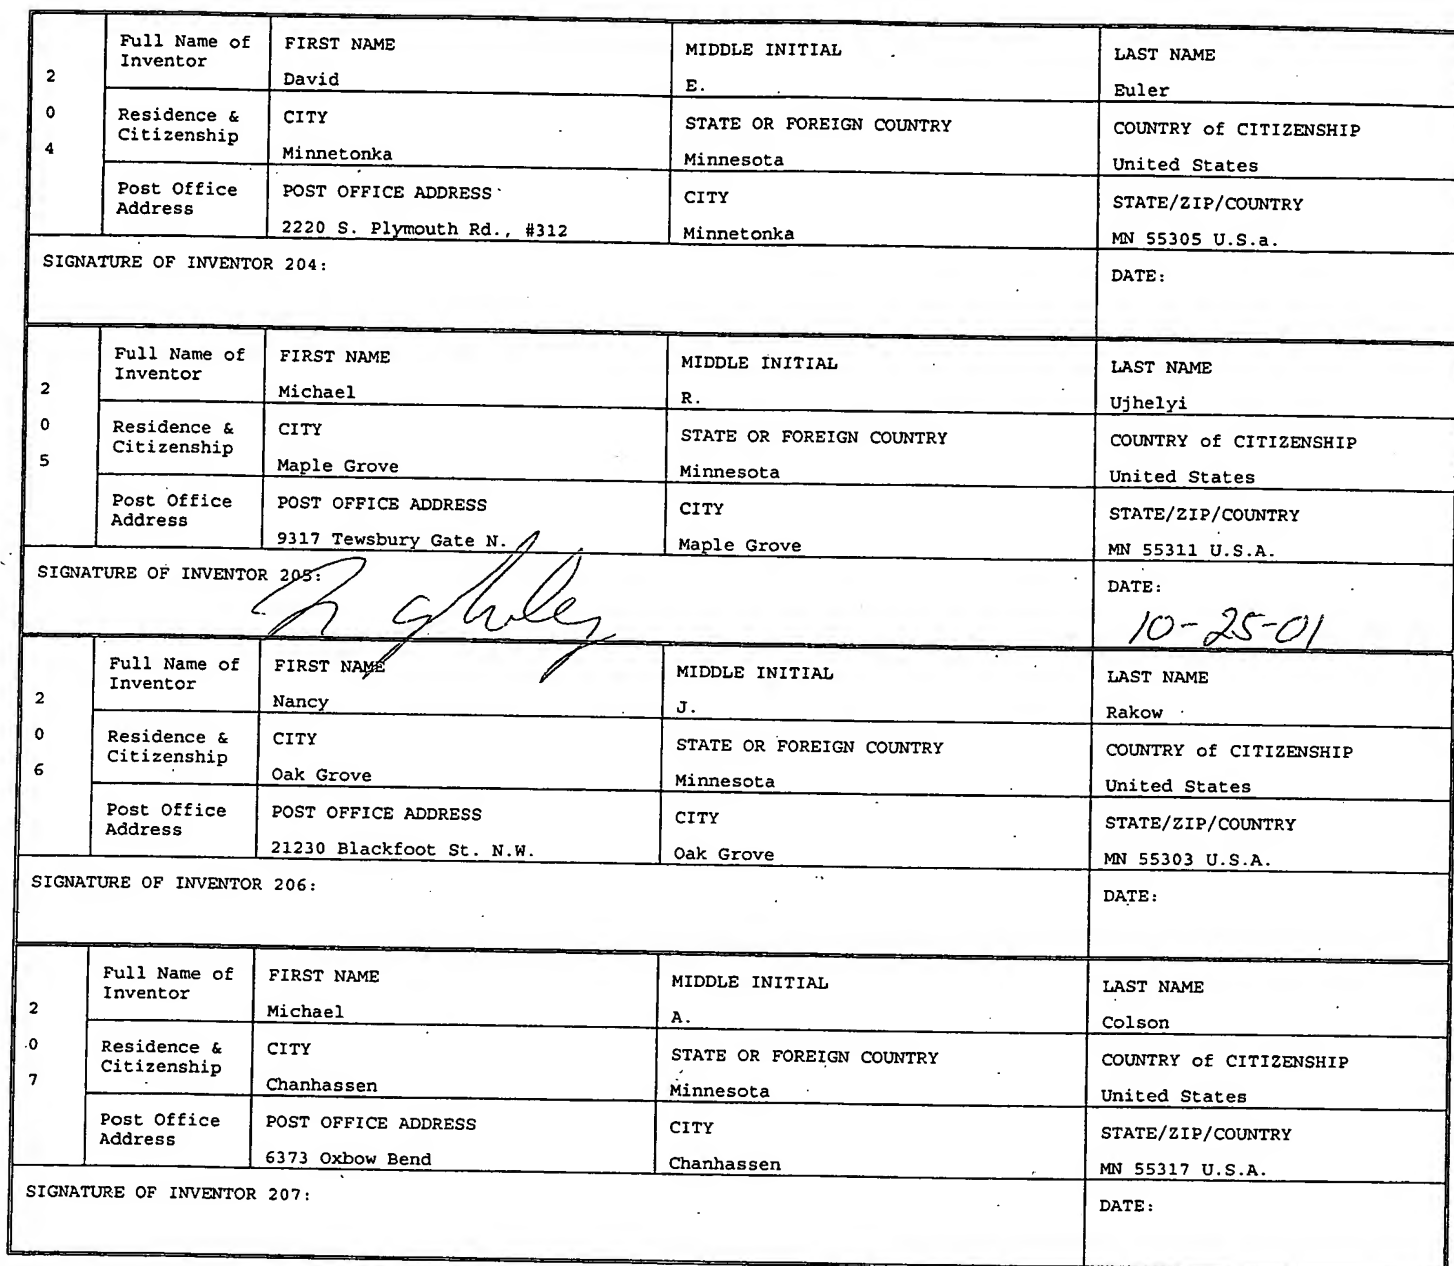 2
0
4
Full Name of Inventor
FIRST NAME
David
MIDDLE INITIAL
E.
LAST NAME
Euler
Residence & Citizenship
CITY
Minnetonka
STATE OR FOREIGN COUNTRY
Minnesota
COUNTRY of CITIZENSHIP
United States
Post Office Address
POST OFFICE ADDRESS
2220 S. Plymouth Rd., #312
CITY
Minnetonka
STATE/ZIP/COUNTRY
MN 55305 U.S.a.
SIGNATURE OF INVENTOR 204:
DATE:
2
0
5
Full Name of Inventor
FIRST NAME
Michael
MIDDLE INITIAL
R.
LAST NAME
Ujhelyi
Residence & Citizenship
CITY
Maple Grove
STATE OR FOREIGN COUNTRY
Minnesota
COUNTRY of CITIZENSHIP
United States
Post Office Address
POST OFFICE ADDRESS
9317 Tewsbury Gate N.
CITY
Maple Grove
STATE/ZIP/COUNTRY
MN 55311 U.S.A.
SIGNATURE OF INVENTOR 205:
DATE:
10-25-01
2
0
6
Full Name of Inventor
FIRST NAME
Nancy
MIDDLE INITIAL
J.
LAST NAME
Rakow
Residence & Citizenship
CITY
Oak Grove
STATE OR FOREIGN COUNTRY
Minnesota
COUNTRY of CITIZENSHIP
United States
Post Office Address
POST OFFICE ADDRESS
21230 Blackfoot St. N.W.
CITY
Oak Grove
STATE/ZIP/COUNTRY
MN 55303 U.S.A.
SIGNATURE OF INVENTOR 206:
DATE:
2
0
7
Full Name of Inventor
FIRST NAME
Michael
MIDDLE INITIAL
A.
LAST NAME
Colson
Residence & Citizenship
CITY
Chanhassen
STATE OR FOREIGN COUNTRY
Minnesota
COUNTRY of CITIZENSHIP
United States
Post Office Address
POST OFFICE ADDRESS
6373 Oxbow Bend
CITY
Chanhassen
STATE/ZIP/COUNTRY
MN 55317 U.S.A.
SIGNATURE OF INVENTOR 207:
DATE: